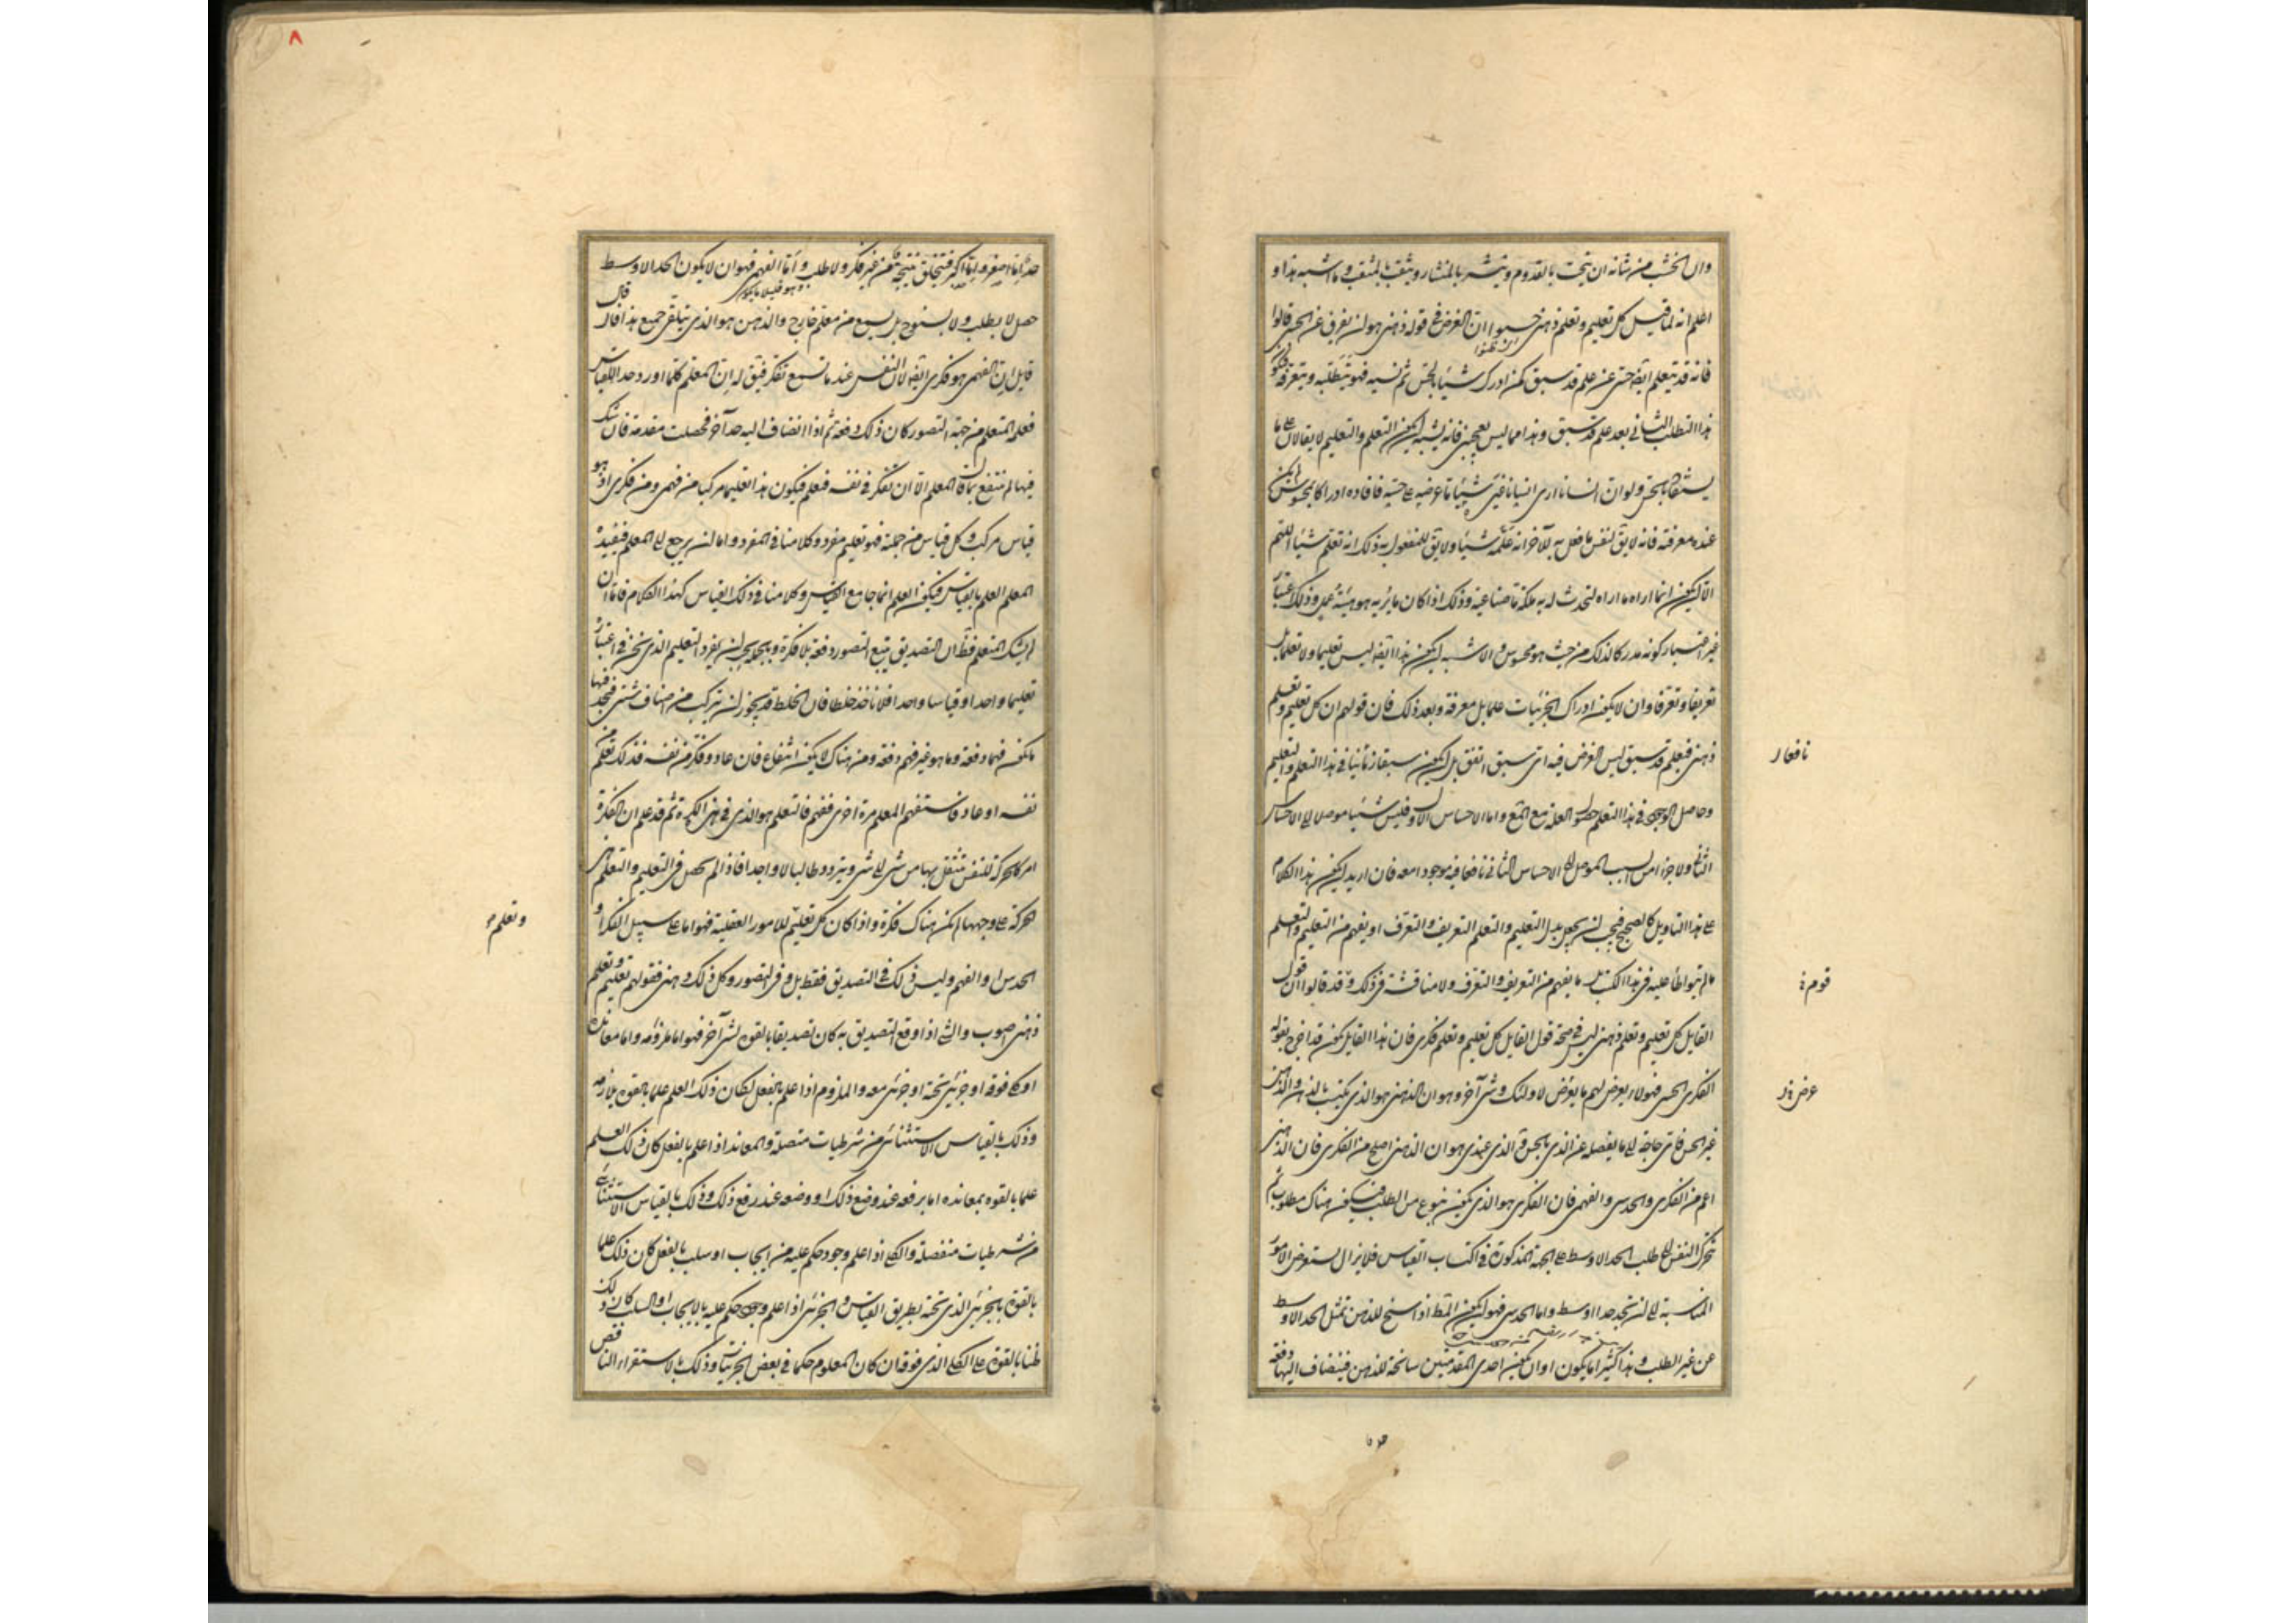 وان الخشب من شانه ان ينحت بالقدوم وينشر بالمنشار ويثقب بالمثقب وما اشبه هذا و
اعلم انه لما قيل كل تعليم وتعلم ذهنى حسبوا ان الغرض فى قوله ذهنى هو ان يفرق عن الحسى قالوا
فانه قد يتعلم ايضا حسى عن علم قد سبق كمن ادرك شيئا بالحس ثم نسيه فهو يتطلبه ويتعرفه فيكون
هذا التطلب الثانى بعد علم قد سبق وهذا مما ليس يعجبنى فانه يشبه ان يكون التعلم والتعليم لا يقالان على ما
يستفاد بالحس ولو ان انسانا ارى انسانا غيره شيئا ما عرضه على حسه فافاده ادراكا لمحسوس لم يكن
عنده معرفته فانه لا يق لنفس ما فعل به للآخر انه علمه شيئا ولا يق للمفعول به ذلك انه تعلم شيئا اللهم
الا ان يكون انما اراه ما اراه لتحدث له به ملكة ما صناعية وذلك اذا كان ما يريه هو هيئة عمل وذلك اعتبار
غير اعتبار كونه مدركا لذلك من حيث هو محسوس والاشبه ان يكون هذا ايضا ليس تعليما ولا تعلما بل
تعريفا وتعرفا وان لا يكون ادراك الجزئيات علما بل معرفة وبعد ذلك فان قولهم ان كل تعليم وتعلم
ذهنى فبعلم قد سبق ليس الغرض فيه اى سبق اتفق بل ان يكون سبقا زمانيا فى هذا التعلم والتعليم
نافعا ر
وحاصل الوجود فى هذا التعلم حصول العلة مع المع واما الاحساس الاول فليس شيئا موصلا الى الاحساس
الثانى ولا جزءا من السبب الموصل الى الاحساس الثانى نافعا فيه موجودا معه فان اريد ان يكون هذا الكلام
على هذا التاويل كالصحيح فيجب ان يجعل بدل التعليم والتعلم التعريف والتعرف او يفهم من التعليم والتعلم
ما لم يتواطأ عليه فى هذا الكتاب ما يفهم من التعريف والتعرف ولا مناقشة فى ذلك وقد قالوا ان قول
قوم
القايل كل تعليم وتعلم ذهنى ليس فى صحة قول القايل كل تعليم وتعلم فكرى فان هذا القايل يكون قد اخرج بقوله
الفكرى الحسى فهولاء يعرض لهم ما يعرض لاولئك وشى آخر وهو ان الذهنى هو الذى يكتسب بالذهن والذهن
عرض
غير الحس فاى حاجة الى ما يفصله عن الذى بالحس والذى عندى هو ان الذهنى اصلح من الفكرى فان الذهنى
اعم من الفكرى والحدسى والفهمى فان الفكرى هو الذى يكون بنوع من الطلب فيكون هناك مطلوب ثم
تتحرك النفس الى طلب الحد الاوسط على الجهة المذكورة فى اكتساب القياس فلا يزال يستعرض الامور
المناسبة الى ان تجد حدا اوسط واما الحدسى فهو ان يكون المط اذا سنح للذهن تمثل الحد الاوسط
عن غير الطلب وهذا كثيرا ما يكون او ان يكون احدى المقدمتين سانحة للذهن فينضاف اليها دفعة
حد اما اصغر واما اكبر فتتخلق نتيجة من غير فكر ولا طلب واما الفهم فهو ان لا يكون الحد الاوسط
حصل لا بطلب ولا بسنوح بل بسمع من معلم خارج والذهن هو الذى يتلقى جميع هذا فان قال
قايل ان الفهمى هو فكرى ايضا لان النفس عند ما تسمع تفكر فيق له ان المعلم كلما اورد حدا للقياس
فعلمه المتعلم من جهة التصور كان ذلك دفعة ثم اذا انضاف اليه حد آخر فحصلت مقدمة فان شك
فيها لم ينتفع بما قاله المعلم الا ان تفكر فى نفسه فتعلم فيكون هذا تعليما مركبا من فهمى ومن فكرى اذ هو
قياس مركب وكل قياس من جملته فهو تعليم مفرد وكلامنا فى المفرد واما ان يرجع الى المعلم فيفيده
المعلم العلم بالقياس فيكون العلم انما جا مع القياس وكلامنا فى ذلك القياس كهذا الكلام فاما ان
لم يشك المتعلم فظ ان التصديق يتبع التصور دفعة بلا فكرة ويجب ان يفرد التعليم الذى نحن فى اعتباره
تعليما واحدا وقياسا واحدا فلا ناخذ خلطا فان الخلط قد يجوز ان يتركب من اصناف شتى فنجد فيها
ما يكون فهما دفعة وما هو غير فهم دفعة ومن هناك لا يكون انتفاع فان عاد وفكر من نفسه فذلك تعلم من
نفسه او عاد فاستفهم المعلم مرة اخرى ففهم فالتعلم هو الذى فى هذه الكرة ثم قد علم ان الفكرة
امر كالحركة للنفس تنتقل بها من شى الى شى ويتردد طالبا لا واجدا فاذا لم يحصل فى التعليم والتعلم هذه
الحركة على وجهها لم يكن هناك فكرة واذا كان كل تعليم للامور العقلية فهو اما على سبيل الفكر او
وتعلم
الحدس او الفهم وليس ذلك فى التصديق فقط بل وفى التصور وكل ذلك ذهنى فقولهم تعليم وتعلم
ذهنى اصوب والشى اذا وقع التصديق به كان تصديقا بالقوة لشى آخر فهو اما ملزومه واما معانده
او كلى فوقه او جزئى تحته او جزئى معه والملزوم اذا علم بالفعل لكان ذلك العلم علما بالقوة بلازمه
وذلك بالقياس الاستثنائى من شرطيات متصلة والمعاند اذا علم بالفعل كان ذلك العلم
علما بالقوة بمعانده اما برفعه عند وضع ذلك او وضعه عند رفع ذلك وذلك بالقياس الاستثنائى
من شرطيات منفصلة والكلى اذا علم وجود حكم عليه من ايجاب او سلب بالفعل كان ذلك علما
بالقوة بالجزئى الذى تحته بطريق القياس والجزئى اذا علم وجود حكم عليه بالايجاب او السلب كان ذلك
ظنا بالقوة على الكلى الذى فوقه ان كان المعلوم حكما فى بعض الجزئيات وذلك بالاستقراء الناقص